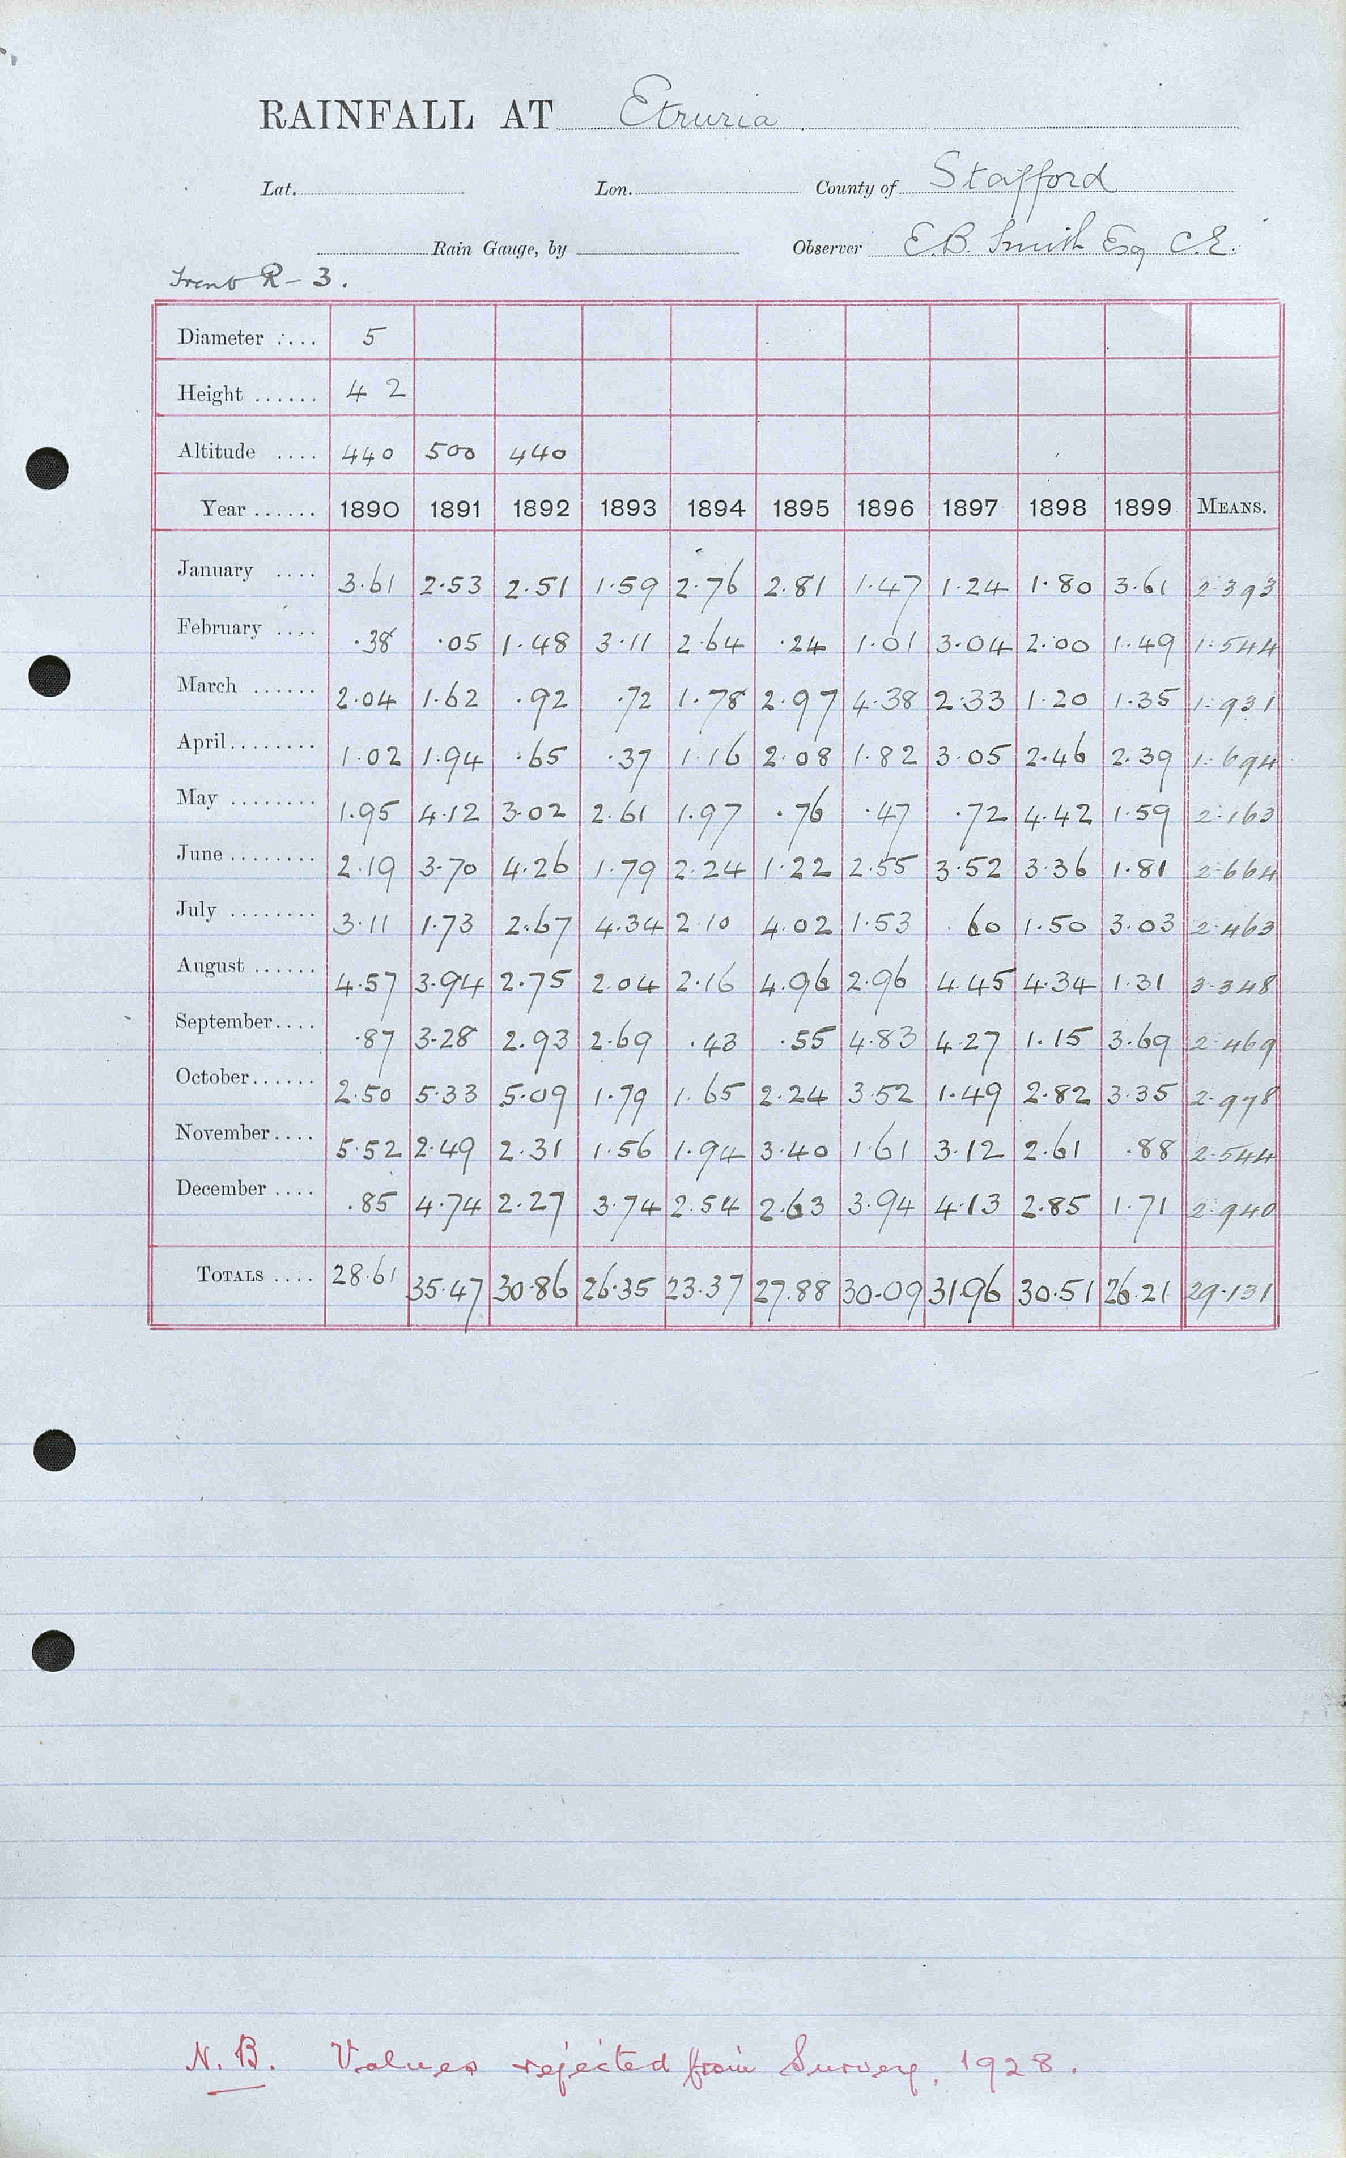 RAINFALL AT Etruria
Lat. Lon. County of Stafford
Rain Gauge, by Observer E.B. Smith Esq C.E.
Trent R - 3.
Diameter .... 5
Height ...... 4 2
Altitude .... 440 500 440
Year ...... 1890 1891 1892 1893 1894 1895 1896 1897 1898 1899 MEANS.
January .... 3.61 2.53 2.51 1.59 2.76 2.81 1.47 1.24 1.80 3.61 2.393
February .... .38 .05 1.48 3.11 2.64 .24 1.01 3.04 2.00 1.49 1.544
March ...... 2.04 1.62 .92 .72 1.78 2.97 4.38 2.33 1.20 1.35 1.931
April........ 1.02 1.94 .65 .37 1.16 2.08 1.82 3.05 2.46 2.39 1.694
May ........ 1.95 4.12 3.02 2.61 1.97 .76 .47 .72 4.42 1.59 2.163
June ........ 2.19 3.70 4.26 1.79 2.24 1.22 2.55 3.52 3.36 1.81 2.664
July ........ 3.11 1.73 2.67 4.34 2.10 4.02 1.53 .60 1.50 3.03 2.463
August ...... 4.57 3.94 2.75 2.04 2.16 4.96 2.96 4.45 4.34 1.31 3.348
September.... .87 3.28 2.93 2.69 .43 .55 4.83 4.27 1.15 3.69 2.469
October...... 2.50 5.33 5.09 1.79 1.65 2.24 3.52 1.49 2.82 3.35 2.978
November.... 5.52 2.49 2.31 1.56 1.94 3.40 1.61 3.12 2.61 .88 2.544
December .... .85 4.74 2.27 3.74 2.54 2.63 3.94 4.13 2.85 1.71 2.940
TOTALS .... 28.61 35.47 30.86 26.35 23.37 27.88 30.09 31.96 30.51 26.21 29.131
N.B. Values rejected from Survey, 1928.